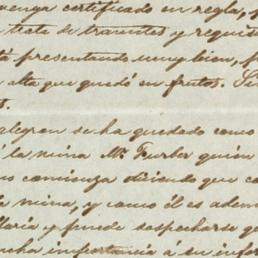 venga certificado en regla, y
trata de tramites y requisi
tá presentando muy bien, p
alta que quedó en frutos. Si
s.
alegren se ha quedado como
á la mina Mr Furber quien
os comienza diciendo que co
la mina, y como él es adem
llaria y puede sospecharse q
ucha importancia á su infor